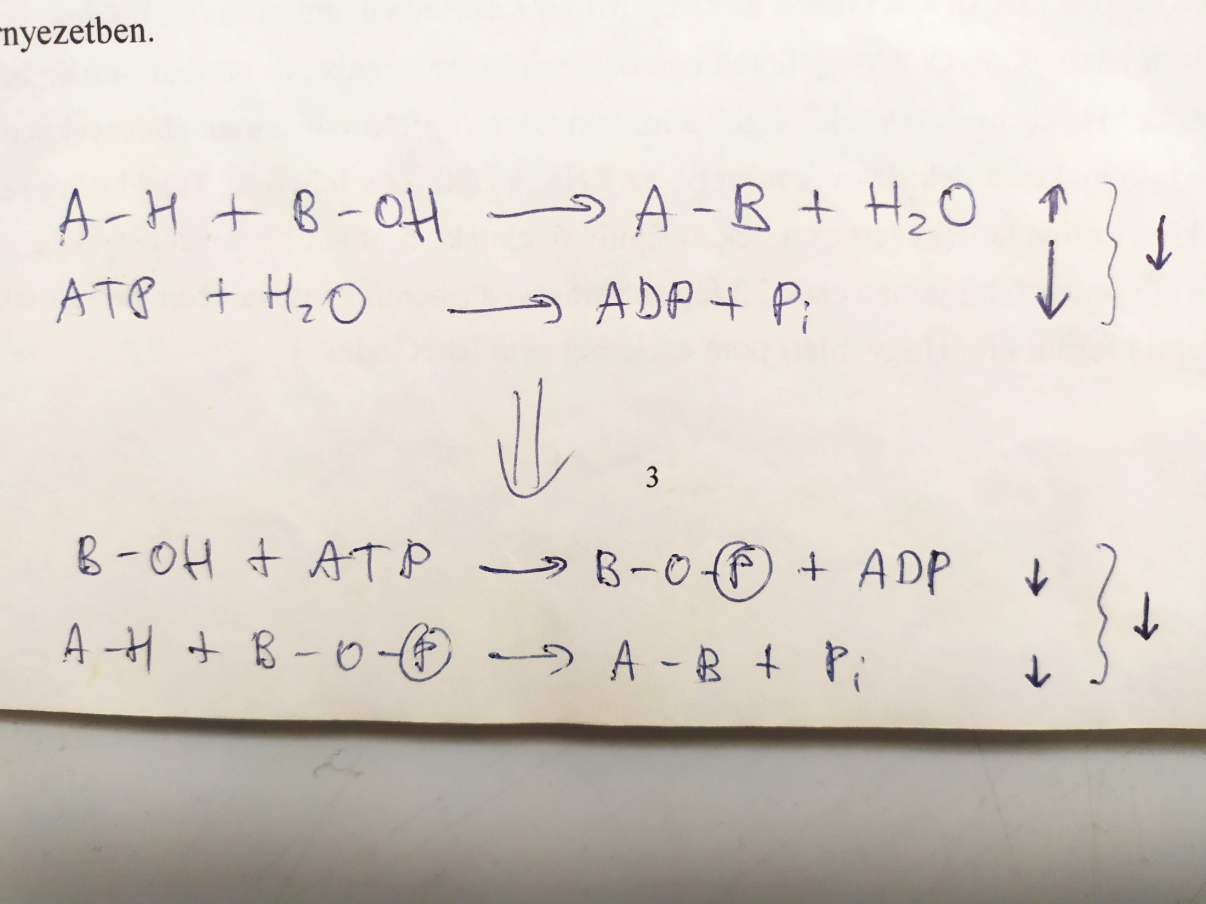 rnyezetben.
A-H + B-OH → A-B + H₂O ↑ } ↓
ATP + H₂O → ADP + Pᵢ ↓
⇓
3
B-OH + ATP → B-O-Ⓟ + ADP ↓ } ↓
A-H + B-O-Ⓟ → A-B + Pᵢ ↓